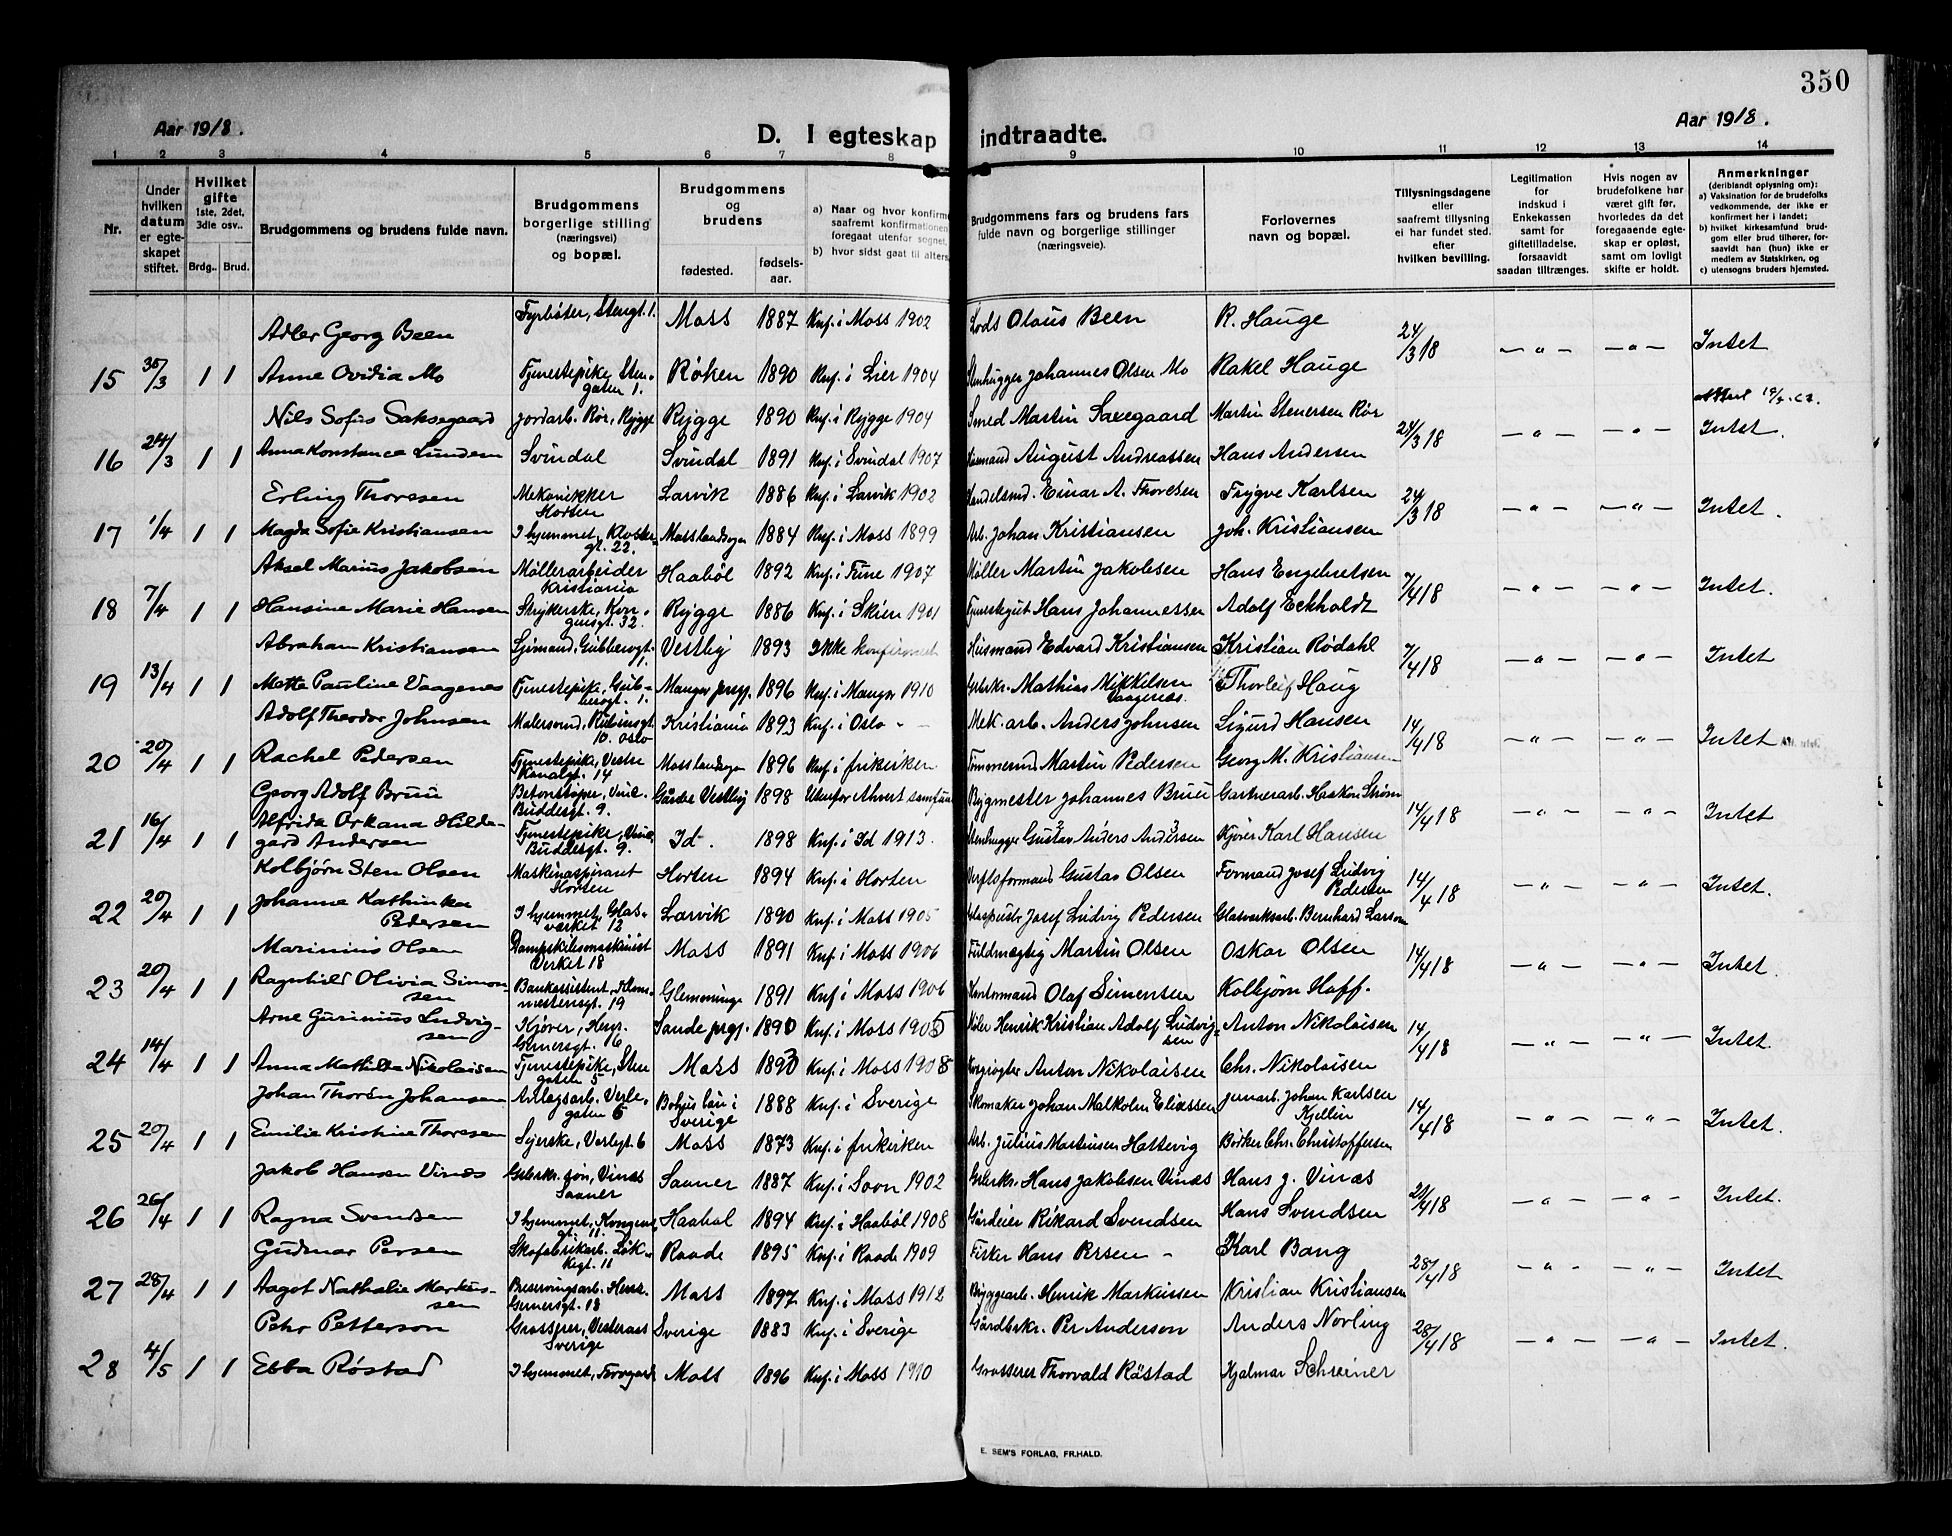 350
Aar 1918.
D. I egteskap indtraadte.
Aar 1918.
1 2 3 4 5 6 7 8 9 10 11 12 13 14
Nr.
Under hvilken datum er egteskapet stiftet.
Hvilket gifte 1ste, 2det, 3die osv..
Brdg.. Brud.
Brudgommens og brudens fulde navn.
Brudgommens borgerlige stilling (næringsvei) og bopæl.
Brudgommens og brudens
fødested.
fødsels-aar.
a) Naar og hvor konfirme
saafremt konfirmationen
foregaat utenfor sognet,
b) hvor sidst gaat til alters.
Brudgommens fars og brudens fars
fulde navn og borgerlige stillinger
(næringsveie).
Forlovernes
navn og bopæl.
Tillysningsdagene
eller
saafremt tillysning
ei har fundet sted.
efter
hvilken bevilling.
Legitimation
for
indskud i
Enkekassen
samt for
giftetilladelse,
forsaavidt
saadan tiltrænges.
Hvis nogen av
brudefolkene har
været gift før,
hvorledes da det
foregaaende egte-
skap er opløst,
samt om lovligt
skifte er holdt.
Anmerkninger
(deriblandt oplysning om):
a) Vaksination for de brudefolks
vedkommende, der ikke er
konfirmert her i landet;
b) hvilket kirkesamfund brud-
gom eller brud tilhører, for-
saavidt han (hun) ikke er
medlem av Statskirken, og
c) utensogns bruders hjemsted.
Adler Georg Been Fyrbøter, Stengt. 1. Moss 1887 Knf. i Moss 1902 Lods Olaus Been R. Hauge 24/3 18 — „ — — „ — Intet
15 30/3 1 1 Anne Ovidia Mo Tjenestepike, Stengaten 1. Røken 1890 Knf. i Lier 1904 Stenhugger Johannes Olsen Mo Rakel Hauge
Nils Sofus Saksegaard Jordarb. Rør, Rygge Rygge 1890 Knf. i Rygge 1904 Smed Martin Saxegaard Martin Stenersen Rør 24/3 18 — „ — — „ — Intet.
16 24/3 1 1 Anna Konstance Lunden Svindal Svindal 1891 Knf. i Svindal 1907 August Andreassen Hans Andersen
Erling Thoresen Mekanikker Horten Larvik 1886 Knf. i Larvik 1902 Handelsmd. Einar A. Thoresen Trygve Karlsen 24/3 18 — „ — — „ — Intet.
17 1/4 1 1 Magda Sofie Kristiansen I hjemmet, Klostergt. 22. Mosslandsogn 1884 Knf. i Moss 1899 Arb. Johan Kristiansen Joh. Kristiansen
Aksel Marius Jakobsen Møllerarbeider Kristiania Haabøl 1892 Knf. i Tune 1907 Møller Martin Jakobsen Hans Engebretsen 7/4 18 — „ — — „ — Intet.
18 7/4 1 1 Hansine Marie Hansen Strykerske, Kongensgt. 32. Rygge 1886 Knf. i Skien 1901 Hans Johannessen Adolf Eckholdt
Abraham Kristiansen Sjømand, Gubberogt. 1. Vestby 1893 Ikke konfirmert Husmand Edvard Kristiansen Kristian Rødahl 7/4 18 — „ — — „ — Intet
19 13/4 1 1 Mette Pauline Vaagenes Tjenestepike, Gubberogt. 1. Manger prgj. 1896 Knf. i Manger 1910 Grbrkr. Mathias Mikkelsen Vaagenæs. Thorleif Haug
Adolf Theodor Johnsen Malersvend, Rubinsgt. 10. Oslo Kristiania 1893 Knf. i Oslo - - Mek. arb. Anders Johnsen Sigurd Hansen 14/4 18 — „ — — „ — Intet
20 20/4 1 1 Rachel Pedersen Tjenestepike, Vestre Kanalgt. 14 Mosslandsogn 1896 Knf. i frikirken Tømmermd Martin Pedersen Georg M. Kristiansen
Georg Adolf Bruu Betonstøper, Vinc. Buddesgt. 9. Gårder Vestby 1898 Utenfor ethvert samfund Bygmester Johannes Bruu Gartnerarb. Haakon Strøm 14/4 18 — „ — — „ — Intet
21 16/4 1 1 Alfrida Orkana Hildegard Andersen Tjenestepike, Vinc. Buddesgt. 9. Id. 1898 Knf. i Id 1913. Stenhugger Gustav Anders Andersen Kjører Karl Hansen
Kolbjørn Sten Olsen Maskinaspirant Horten Horten 1894 Knf. i Horten Verftsformand Gustav Olsen Formand Josef Ludvig Pedersen 14/4 18 — „ — — „ — Intet.
22 20/4 1 1 Johanne Kathinka Pedersen I hjemmet, Glasværket 12 Larvik 1890 Knf. i Moss 1905 Glaspuster Josef Ludvig Pedersen Glasverksarb. Bernhard Larsen
Marinius Olsen Dampskibsmaskinist Verket 18 Moss 1891 Knf. i Moss 1906 Fuldmægtig Martin Olsen Oskar Olsen 14/4 18 — „ — — „ — Intet.
23 20/4 1 1 Ragnhild Olivia Simonsen Bankassistent, Klommestensgt. 19 Glemminge 1891 Knf i Moss 1906 Olaf Simensen Kolbjørn Hoff.
Arne Gurinius Ludvigsen Kjører, Henr. Gernersgt. 16 Sande prgj. 1890 Knf. i Moss 1905 Møler Henrik Kristian Adolf Ludvigsen Anton Nikolaisen 14/4 18 — „ — — „ — Intet.
24 14/4 1 1 Anna Mathilde Nikolaisen Tjenestepike, Stengaten 5 Moss 1893 Knf. i Moss 1908 Anton Nikolaisen Chr. Nikolaisen
Johan Thorén Johansen Anlægsarb. Verlegaten 6 Bohus län i Sverige 1888 Knf. i Sverige Skomaker Johan Malkolm Eliassen Jernarb. Johan Karlsen Kjellin 14/4 18 — „ — — „ — Intet.
25 20/4 1 1 Emilie Kristine Thoresen Syerske, Verlegt. 6 Moss 1873 Knf. i frikirken Arb. Julius Martinsen Hattevig Bødker Chr. Christoffersen
Jakob Hansen Vinæs Grbrkr. søn, Vinæs Saaner Saaner 1887 Knf. i Sovn 1902 Grbrkr. Hans Jakobsen Vinæs Hans J. Vinæs 21/4 18 — „ — — „ — Intet.
26 26/4 1 1 Ragna Svendsen I hjemmet, Kongensgt. 11 Haabøl 1894 Knf. i Haabøl 1908 Gårdeier Rikard Svendsen Hans Svendsen
Gudmar Persen Skofabrikarb. Løkkegt. 11 Raade 1895 Knf. i Raade 1909 Fisker Hans Persen - Karl Bang 28/4 18 — „ — — „ — Intet
27 28/4 1 1 Aagot Nathalie Markussen Preserveringsarb. Henr. Gernersgt. 18 Moss 1897 Knf. i Moss 1912 Bryggearb. Henrik Markussen Kristian Kristiansen
Pehr Petterson Grosserer, Vesteraas Sverige Sverige 1883 Knf. i Sverige Gårdbrkr. Per Anderson Anders Norling 28/4 18 — „ — — „ — Intet.
28 4/5 1 1 Ebba Røstad I hjemmet, Torvgard Moss 1896 Knf. i Moss 1910 Grosserer Thorvald Røstad Hjalmar Schreiner
E. SEM'S FORLAG, FR.HALD.